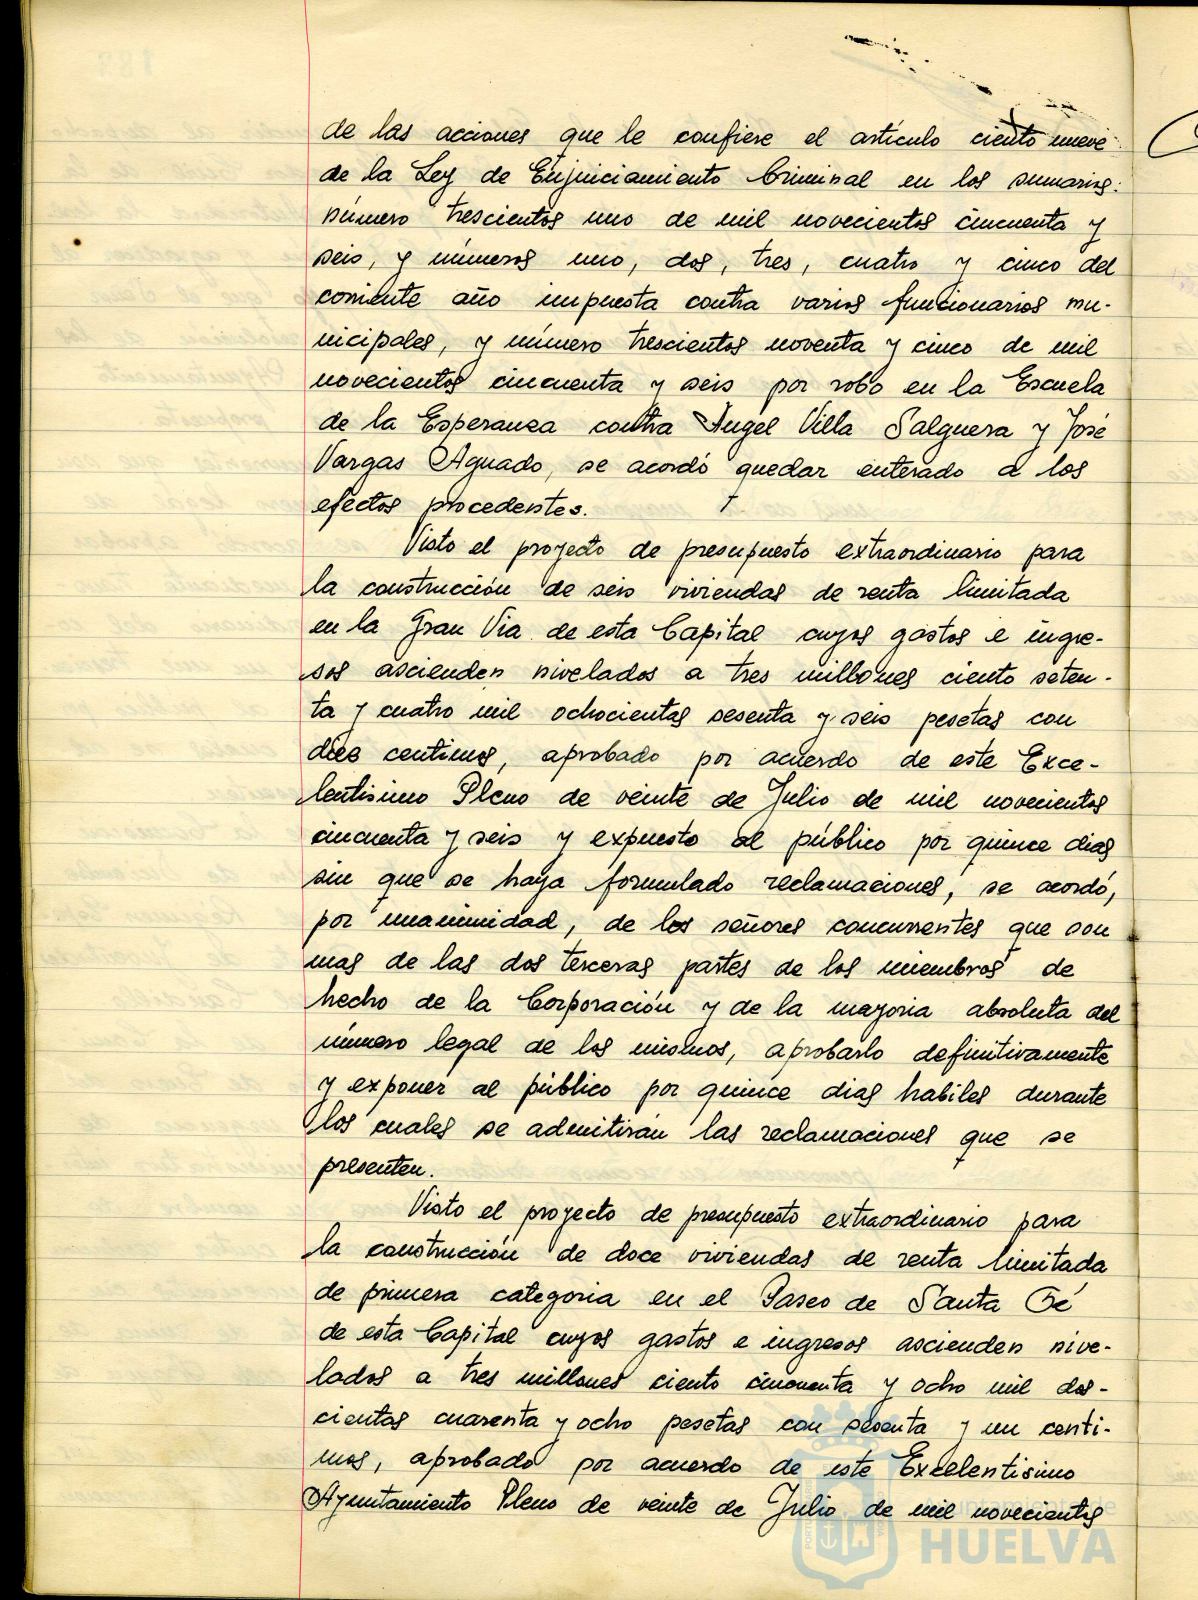 de las acciones que le confiere el artículo ciento nueve
de la Ley de Enjuiciamiento Criminal en los sumarios:
número trescientos uno de mil novecientos cincuenta y
seis, y números uno, dos, tres, cuatro y cinco del
corriente año impuesta contra varios funcionarios mu-
nicipales, y número trescientos noventa y cinco de mil
novecientos cincuenta y seis por robo en la Escuela
de la Esperanza contra Angel Villa Salguera y José
Vargas Aguado, se acordó quedar enterado a los
efectos procedentes.
Visto el proyecto de presupuesto extraordinario para
la construcción de seis viviendas de renta limitada
en la Gran Via de esta Capital cuyos gastos e ingre-
sos ascienden nivelados a tres millones ciento seten-
ta y cuatro mil ochocientas sesenta y seis pesetas con
diez centimos, aprobado por acuerdo de este Exce-
lentisimo Pleno de veinte de Julio de mil novecientos
cincuenta y seis y expuesto al público por quince dias
sin que se haya formulado reclamaciones, se acordó,
por unanimidad, de los señores concurrentes que son
mas de las dos terceras partes de los miembros de
hecho de la Corporación y de la mayoria absoluta del
número legal de los mismos, aprobarlo definitivamente
y exponer al público por quince dias habiles durante
los cuales se admitirán las reclamaciones que se
presenten.
Visto el proyecto de presupuesto extraordinario para
la construcción de doce viviendas de renta limitada
de primera categoria en el Paseo de Santa Fé
de esta Capital cuyos gastos e ingresos ascienden nive-
lados a tres millones ciento cincuenta y ocho mil dos-
cientas cuarenta y ocho pesetas con sesenta y un centi-
mos, aprobado por acuerdo de este Excelentisimo
Ayuntamiento Pleno de veinte de Julio de mil novecientos
Ayuntamiento de
HUELVA